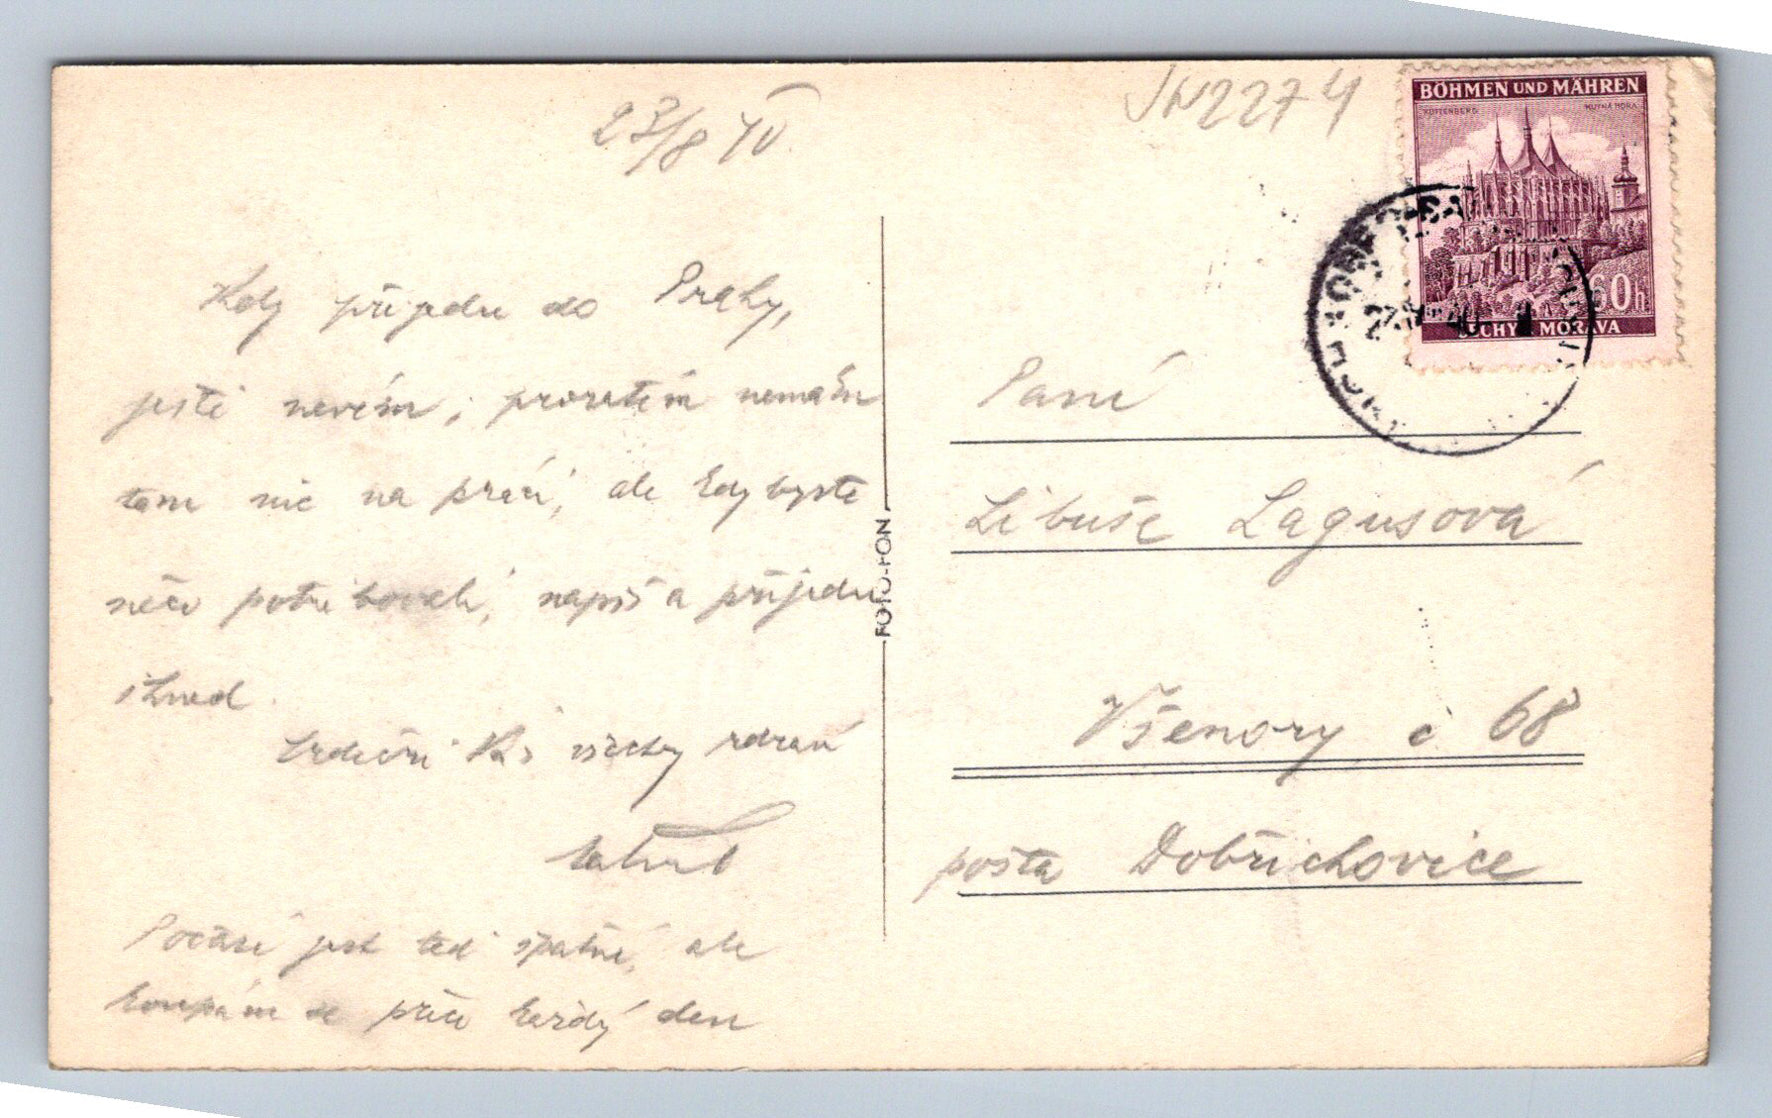 23/8 40.
JN2274
BÖHMEN UND MÄHREN
KUTTENBERG KUTNÁ HORA
60h
ČECHY A MORAVA
Kdy přijedu do Prahy,
ještě nevím, prozatím nemám
tam nic na práci, ale kdybyste
něco potřebovali, napiš a přijedu
ihned.
Srdečně Vás všechny zdraví
Počasí jest teď špatné, ale
koupám se přece každý den
FOTO-FON
Paní
Libuše Lagusová
Všenory č 68
pošta Dobřichovice